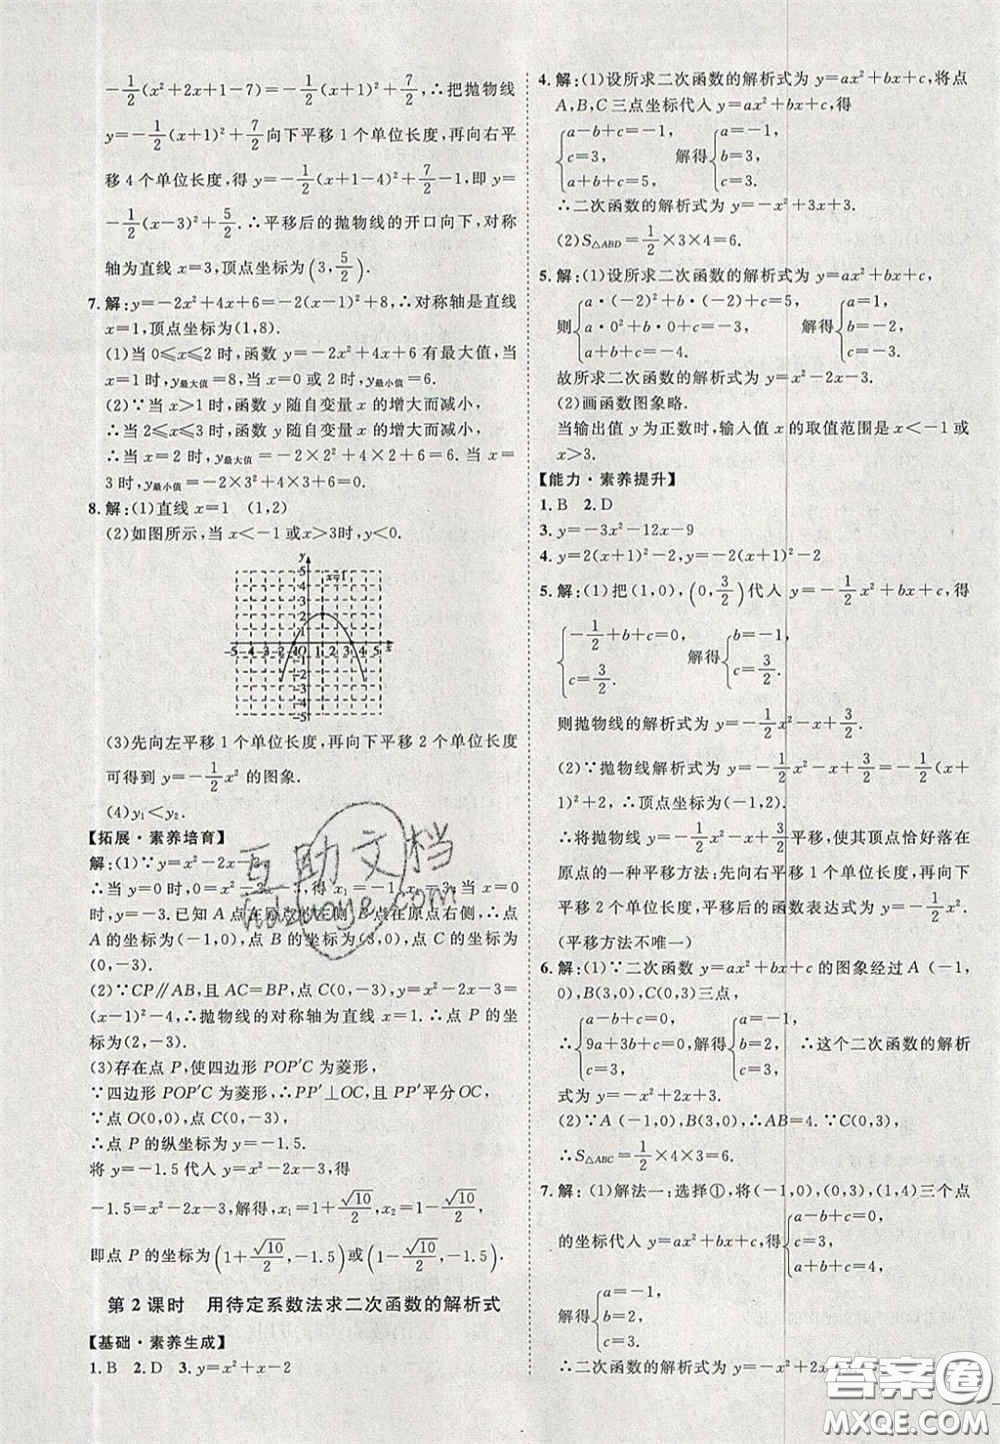 -1/2(x²+2x+1-7)=-1/2(x+1)²+7/2,∴把抛物线
y=-1/2(x+1)²+7/2向下平移1个单位长度,再向右平
移4个单位长度,得y=-1/2(x+1-4)²+7/2-1,即y=
-1/2(x-3)²+5/2.∴平移后的抛物线的开口向下,对称
轴为直线x=3,顶点坐标为(3,5/2).
7.解:y=-2x²+4x+6=-2(x-1)²+8,∴对称轴是直线
x=1,顶点坐标为(1,8).
(1)当0≤x≤2时,函数y=-2x²+4x+6有最大值,当
x=1时,y最大值=8,当x=0或2时,y最小值=6.
(2)∵当x>1时,函数y随自变量x的增大而减小,
∴当2≤x≤3时,函数y随自变量x的增大而减小,
∴当x=2时,y最大值=-2×2²+4×2+6=6,当
x=3时,y最小值=-2×3²+4×3+6=0.
8.解:(1)直线x=1 (1,2)
(2)如图所示,当x<-1或x>3时,y<0.
y
x=1
5
4
3
2
1
-5-4-3-2-1O 1 2 3 4 5 x
-1
-2
-3
-4
-5
(3)先向左平移1个单位长度,再向下平移2个单位长度
可得到y=-1/2x²的图象.
(4)y₁<y₂.
【拓展·素养培育】
解:(1)∵y=x²-2x-3,
∴当y=0时,0=x²-2x-3,得x₁=-1,x₂=3,当x=0时,
y=-3.已知A点在原点左侧,B点在原点右侧,∴点
A的坐标为(-1,0),点B的坐标为(3,0),点C的坐标为
(0,-3).
(2)∵CP∥AB,且AC=BP,点C(0,-3),y=x²-2x-3=
(x-1)²-4,∴抛物线的对称轴为直线x=1.∴点P的坐标为
(2,-3).
(3)存在点P,使四边形POP′C为菱形,
∵四边形POP′C为菱形,∴PP′⊥OC,且PP′平分OC,
∵点O(0,0),点C(0,-3),
∴点P的纵坐标为y=-1.5.
将y=-1.5代入y=x²-2x-3,得
-1.5=x²-2x-3,解得,x₁=1+√10/2,x₂=1-√10/2,
即点P的坐标为(1+√10/2,-1.5)或(1-√10/2,-1.5).
第2课时 用待定系数法求二次函数的解析式
【基础·素养生成】
1.B 2.D 3.y=x²+x-2
4.解:(1)设所求二次函数的解析式为y=ax²+bx+c,将点
A,B,C三点坐标代入y=ax²+bx+c,得
{a-b+c=-1, c=3, a+b+c=5, 解得{a=-1, b=3, c=3.
∴二次函数的解析式为y=-x²+3x+3.
(2)S△ABD=1/2×3×4=6.
5.解:(1)设所求二次函数的解析式为y=ax²+bx+c,
则{a·(-2)²+b·(-2)+c=5, a·0²+b·0+c=-3, a+b+c=-4. 解得{a=1, b=-2, c=-3.
故所求二次函数的解析式为y=x²-2x-3.
(2)画函数图象略.
当输出值y为正数时,输入值x的取值范围是x<-1或
x>3.
【能力·素养提升】
1.B 2.D
3.y=-3x²-12x-9
4.y=2(x+1)²-2,y=-2(x-1)²-2
5.解:(1)把(1,0),(0,3/2)代入y=-1/2x²+bx+c,得
{-1/2+b+c=0, c=3/2. 解得{b=-1, c=3/2.
则抛物线的解析式为y=-1/2x²-x+3/2.
(2)∵抛物线解析式为y=-1/2x²-x+3/2=-1/2(x+
1)²+2,∴顶点坐标为(-1,2).
∴将抛物线y=-1/2x²-x+3/2平移,使其顶点恰好落在
原点的一种平移方法:先向右平移1个单位长度,再向下
平移2个单位长度,平移后的函数表达式为y=-1/2x².
(平移方法不唯一)
6.解:(1)∵二次函数y=ax²+bx+c的图象经过A(-1,
0),B(3,0),C(0,3)三点,
∴{a-b+c=0, 9a+3b+c=0, c=3. 解得{a=-1, b=2, c=3. ∴这个二次函数的解析
式为y=-x²+2x+3.
(2)∵A(-1,0),B(3,0),∴AB=4.
∴S△ABC=1/2×4×3=6.
7.解:(1)解法一:选择①,将(-1,0),(0,3),(1,4)三个点
的坐标代入y=ax²+bx+c,得{a-b+c=0, c=3, a+b+c=4,
解得{a=-1, b=2, c=3.
∴二次函数的解析式为y=-x²+2x+3.
互助文档
hdzuoye.com
答案圈
MXQE.COM